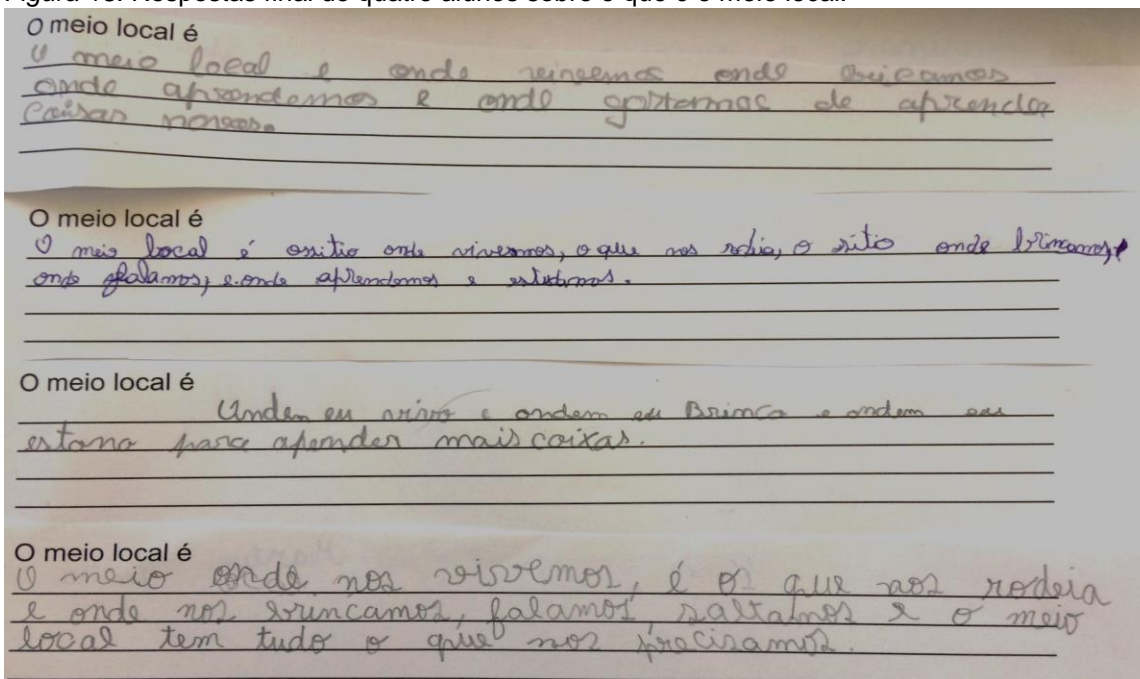 Figura 18: Respostas final de quatro alunos sobre o que é o meio local.
O meio local é
O meio local e onde vivemos onde bricamos
onde aprendemos e onde gostamos de aprender
coisas novas.
O meio local é
O meio local é o sitio onde vivemos, o que nos rodia, o sitio onde brincamos,
onde falamos, e onde aprendemos e estudamos.
O meio local é
Onden eu vivo e ondem eu Brinco e ondem eu
para apender mais coixas.
O meio local é
O meio onde nos vivemos, é o que nos rodeia
e onde nos brincamos, falamos, saltamos e o meio
local tem tudo o que nos precisamos.